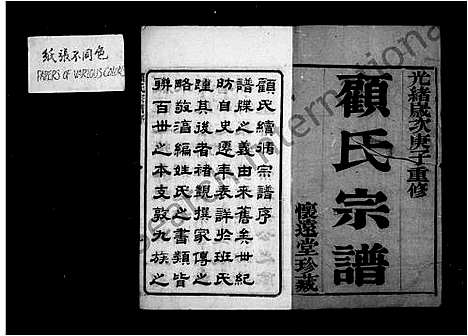 紙張不同色
PAPERS OF VARIOUS COLORS
光緒歲次庚子重修
顧氏宗譜
懷遠堂珍藏
顧氏續修宗譜序
譜牒之義由來舊矣世紀
昉自史遷年表詳於班氏
踵其後者諸親撰家傳之
略敬滀編姓氏之書類皆
聯百世之本支敦九族之